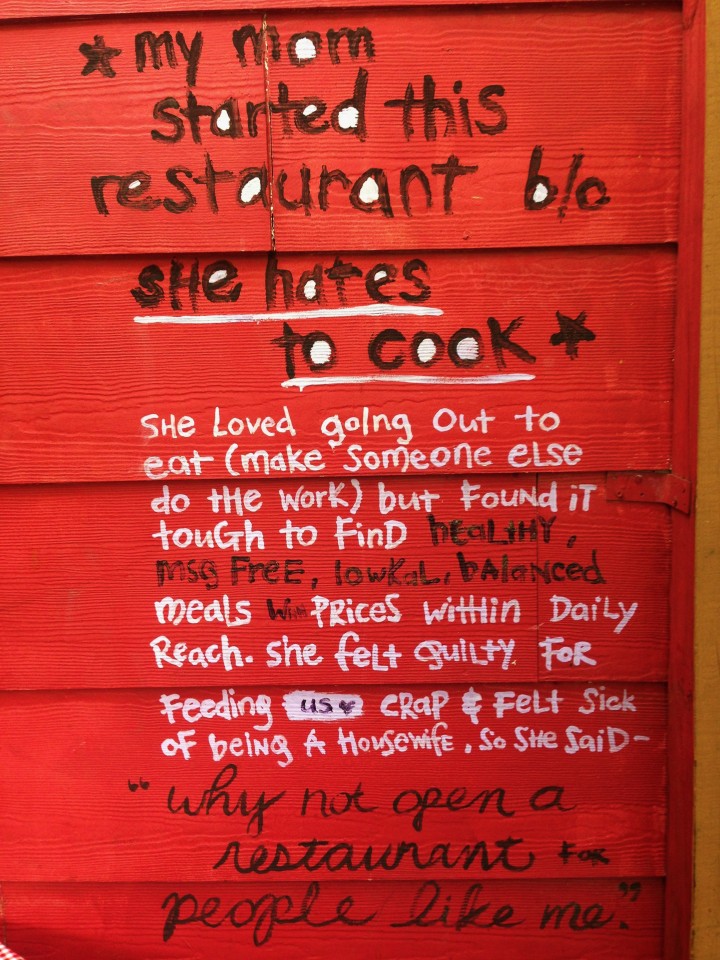 ★ my mom
started this
restaurant b/c
SHe hates
to cook ★
SHe Loved goIng Out to
eat (make someone eLSe
do tHe work) but Found iT
touGh to FinD heaLTHY,
msg FReE, lowKaL, bAlaNced
meals WitH PRiceS witHin DaiLy
ReacH. She feLt guiLTY FoR
Feeding us ♥ CRaP & FeLT Sick
oF beiNg A HouSewiFe, So SHe SaiD-
"why not open a
restaurant FoR
people like me."